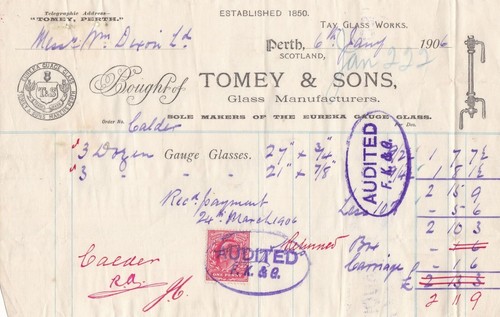 ESTABLISHED 1850.
Telegraphic Address—
"TOMEY, PERTH."
TAY GLASS WORKS.
Mess Wm Dixon Ld
Perth, 6th Jany 1906
SCOTLAND,
Jan 222
EUREKA GAUGE GLASS
TRADE MARK
T&S
Bought of TOMEY & SONS,
Glass Manufacturers.
SOLE MAKERS OF THE EUREKA GAUGE GLASS.
Order No. Calder
Per Doz.
3 Dozen Gauge Glasses. 24" x 3/4 1 7 7½
3 " " 21" x 7/8 1 8 1½
2 15 9
Less 10% - 5 6
2 10 3
Recd payment
24th March 1906
AUDITED
F. K. & G.
Returned Box - - 6
Carriage - 1 6
£ 2 13 3
2 11 9
AUDITED
F. K. & G.
Calder